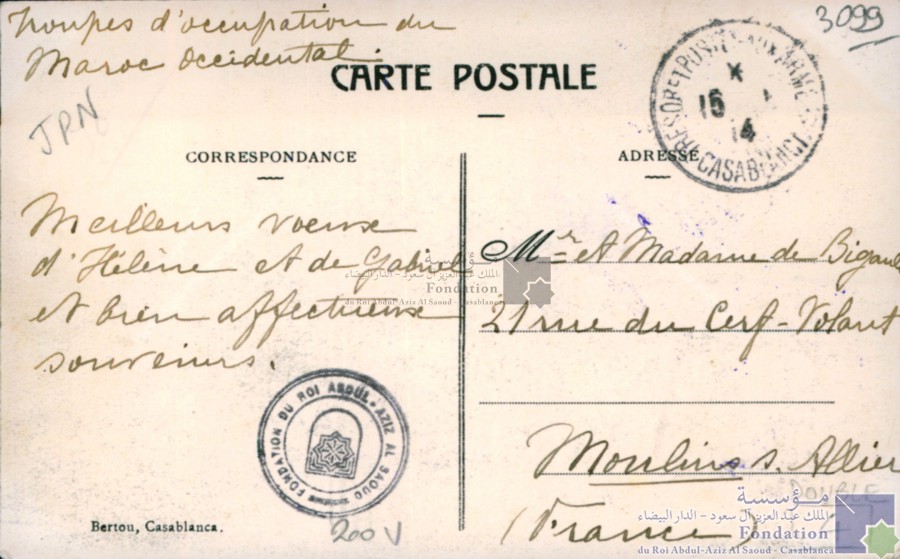 Troupes d'occupation du
Maroc Occidental.
3099
CARTE POSTALE
JPN
TRESOR ET POSTES AUX ARMEES
15 1
14
CASABLANCA
CORRESPONDANCE
ADRESSE
Meilleurs voeux
d'Hélène et de Gabriel
et bien affectueux
souvenirs.
Mr et Madame de Bigault
21 rue du Cerf-Volant
Moulins s. Allier
(France)
الملك عبد العزيز آل سعود - الدار البيضاء
Fondation
du Roi Abdul-Aziz Al Saoud - Casablanca
FONDATION DU ROI ABDUL-AZIZ AL SAOUD
Bertou, Casablanca.
200 V
DOUBLE
مؤسسة
الملك عبد العزيز آل سعود - الدار البيضاء
Fondation
du Roi Abdul-Aziz Al Saoud - Casablanca